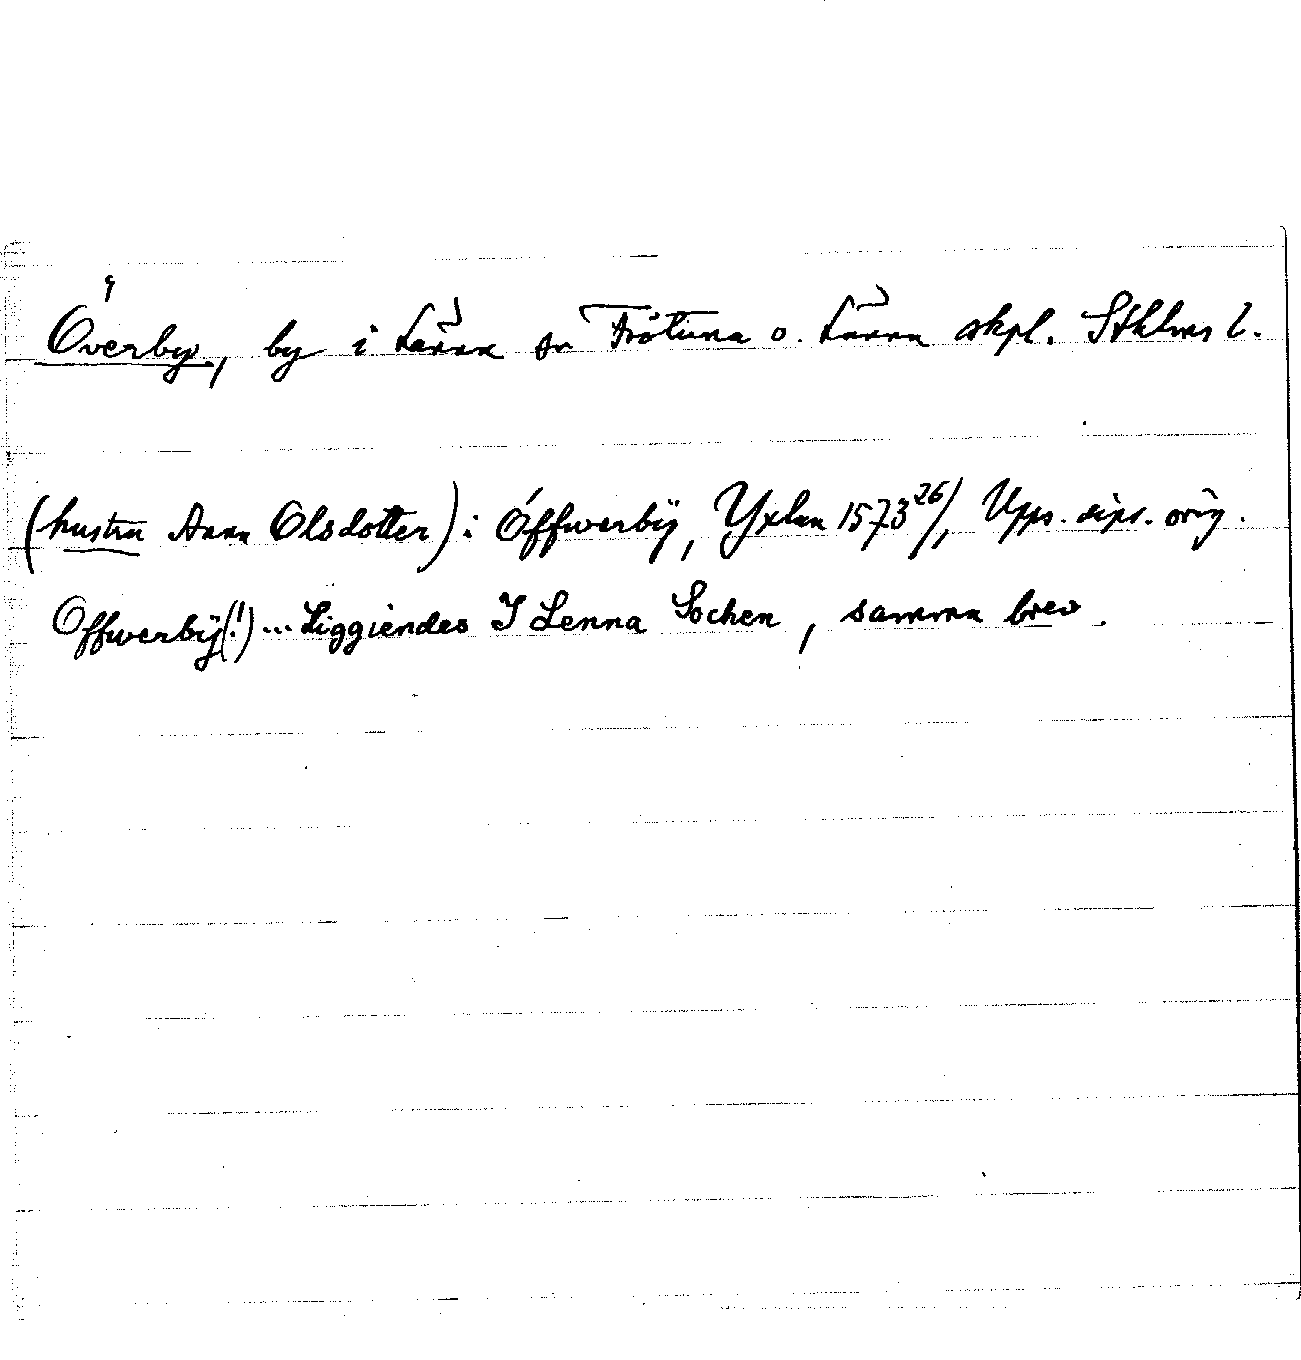 Överby, by i Länna sn Frötuna o. Länna skpl. Sthlms l.
(hustru Anna Olsdotter) i Öffwerbÿ, Yxlan 1573 26/, Upps. dipl. orig.
Offwerbÿ(!) ... Liggiendes I Lenna Sochen, samma brev.